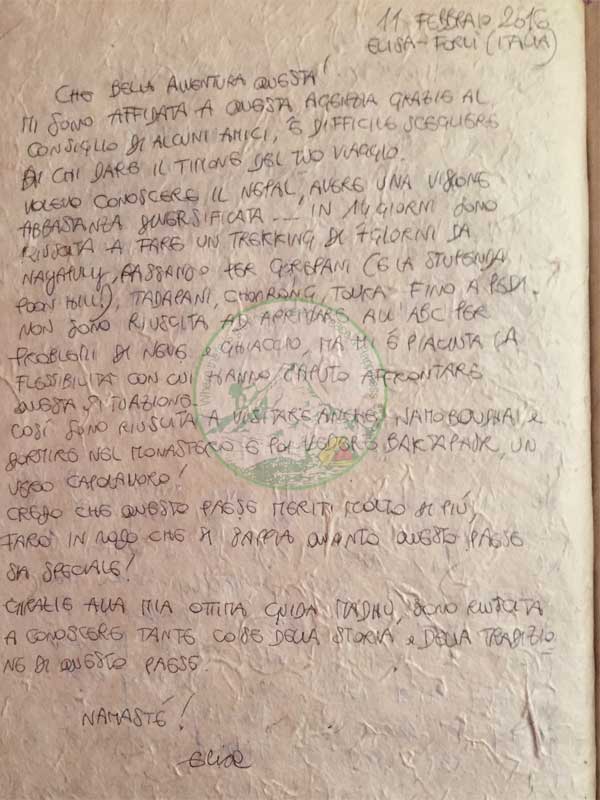 11 FEBBRAIO 2016
ELISA - FORLÌ (ITALIA)
CHE BELLA AVVENTURA QUESTA!
MI SONO AFFIDATA A QUESTA AGENZIA GRAZIE AL
CONSIGLIO DI ALCUNI AMICI, È DIFFICILE SCEGLIERE
DI CHI DARE IL TIMONE DEL TUO VIAGGIO.
VOLEVO CONOSCERE IL NEPAL, AVERE UNA VISIONE
ABBASTANZA DIVERSIFICATA --- IN 14 GIORNI SONO
RIUSCITA A FARE UN TREKKING DI 7 GIORNI DA
NAYAPULY, PASSANDO PER GOREPANI (E LA STUPENDA
POON HILL), TADAPANI, CHOMRONG, TOLKA - FINO A PEDI.
NON SONO RIUSCITA AD ARRIVARE ALL'ABC PER
PROBLEMI DI NEVE e GHIACCIO, MA MI È PIACIUTA LA
FLESSIBILITÀ CON CUI HANNO SAPUTO AFFRONTARE
QUESTA SITUAZIONE.
COSÌ SONO RIUSCITA A VISITARE ANCHE NAMOBOUDHAI e
DORMIRE NEL MONASTERO E POI VEDERE BAKTAPAUR, UN
VERO CAPOLAVORO!
CREDO CHE QUESTO PAESE MERITI MOLTO DI PIÙ,
FARÒ IN MODO CHE SI SAPPIA QUANTO QUESTO PAESE
SIA SPECIALE!
GRAZIE ALLA MIA OTTIMA GUIDA MADHU, SONO RIUSCITA
A CONOSCERE TANTE COSE DELLA STORIA e DELLA TRADIZIO
NE DI QUESTO PAESE.
NAMASTÉ!
Elisa